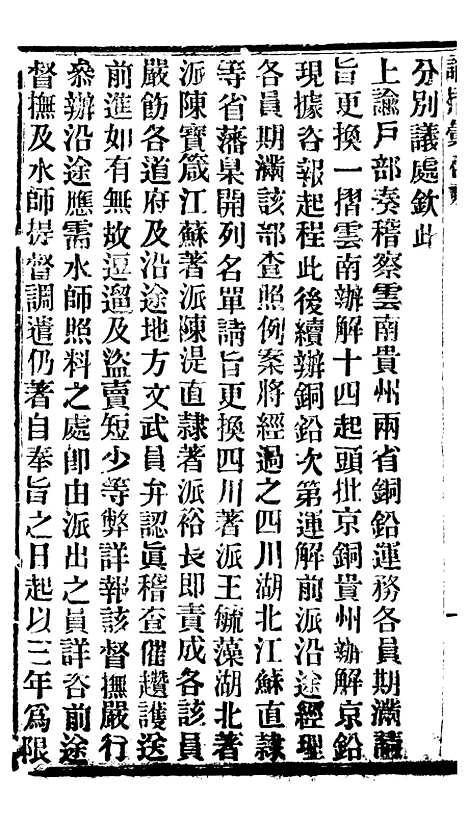 分別議處欽此
上諭戶部奏稽察雲南貴州兩省銅鉛運務各員期滿請
旨更換一摺雲南辦解十四起頭批京銅貴州辦解京鉛
現據咨報起程此後續辦銅鉛次第運解前派沿途經理
各員期滿該部查照例案將經過之四川湖北江蘇直隸
等省藩臬開列名單請旨更換四川著派王毓藻湖北著
派陳寶箴江蘇著派陳湜直隸著派裕長即責成各該員
嚴飭各道府及沿途地方文武員弁認眞稽查催趲護送
前進如有無故逗遛及盜賣短少等弊詳報該督撫嚴行
叅辦沿途應需水師照料之處即由派出之員詳咨前途
督撫及水師提督調遣仍著自奉旨之日起以三年爲限